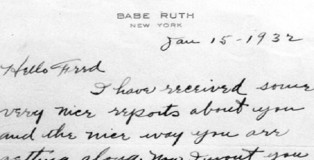 BABE RUTH
NEW YORK
Jan 15-1932
Hello Fred
I have received some
very nice reports about you
and the nice way you are
getting along. Now I want you